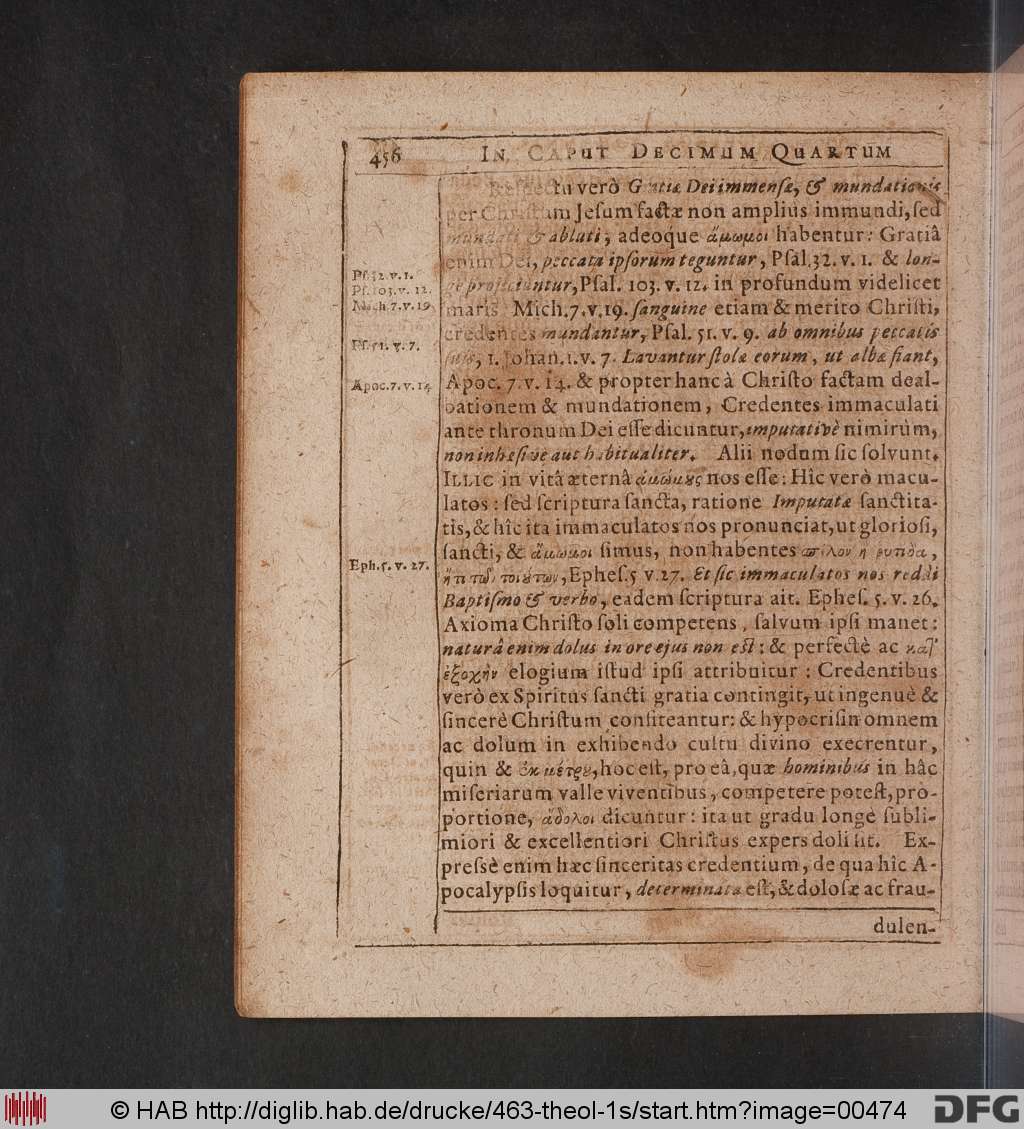 456 IN CAPUT DECIMUM QUARTUM
Respectu verò Gratiæ Dei immensæ, & mundationis
per Christum Jesum factæ non amplius immundi, sed
mundati & abluti, adeoque ἄμωμοι habentur: Gratiâ
enim Dei, peccata ipsorum teguntur, Psal. 32. v. 1. & lon-
Ps. 32. v. 1.
ge projiciuntur, Psal. 103. v. 12. in profundum videlicet
Ps. 103. v. 12.
maris Mich. 7. v. 19. sanguine etiam & merito Christi,
Mich. 7. v. 19
credentes mundantur, Psal. 51. v. 9. ab omnibus peccatis
Ps. 51. v. 7.
suis, 1. Johan. 1. v. 7. Lavantur stolæ eorum, ut albæ fiant,
Apoc. 7. v. 14. & propter hanc à Christo factam deal-
Apoc. 7. v. 14
bationem & mundationem, Credentes immaculati
ante thronum Dei esse dicuntur, imputativè nimirùm,
non inhæsivè aut habitualiter. Alii nodum sic solvunt.
ILLIC in vitâ æternâ ἀμώμȣς nos esse: Hîc verò macu-
latos: sed scriptura sancta, ratione Imputatæ sanctita-
tis, & hîc ita immaculatos nos pronunciat, ut gloriosi,
sancti, & ἄμωμοι simus, non habentes σπίλον ἢ ῥυτίδα,
Eph. 5. v. 27.
ἤ τι τῶν τοιȣ́των, Ephes. 5 v. 27. Et sic immaculatos nos reddi
Baptismo & verbo, eadem scriptura ait. Ephes. 5. v. 26.
Axioma Christo soli competens, salvum ipsi manet:
naturâ enim dolus in ore ejus non est: & perfectè ac κατ'
ἐξοχὴν elogium istud ipsi attribuitur: Credentibus
verò ex Spiritus sancti gratia contingit, ut ingenuè &
sincerè Christum confiteantur: & hypocrisin omnem
ac dolum in exhibendo cultu divino execrentur,
quin & ἐκ μέτρȣ, hoc est, pro eâ, quæ hominibus in hâc
miseriarum valle viventibus, competere potest, pro-
portione, ἄδολοι dicuntur: ita ut gradu longè subli-
miori & excellentiori Christus expers doli sit. Ex-
pressè enim hæc sinceritas credentium, de qua hîc A-
pocalypsis loquitur, determinata est, & dolosæ ac frau-
dulen-
© HAB http://diglib.hab.de/drucke/463-theol-1s/start.htm?image=00474
DFG